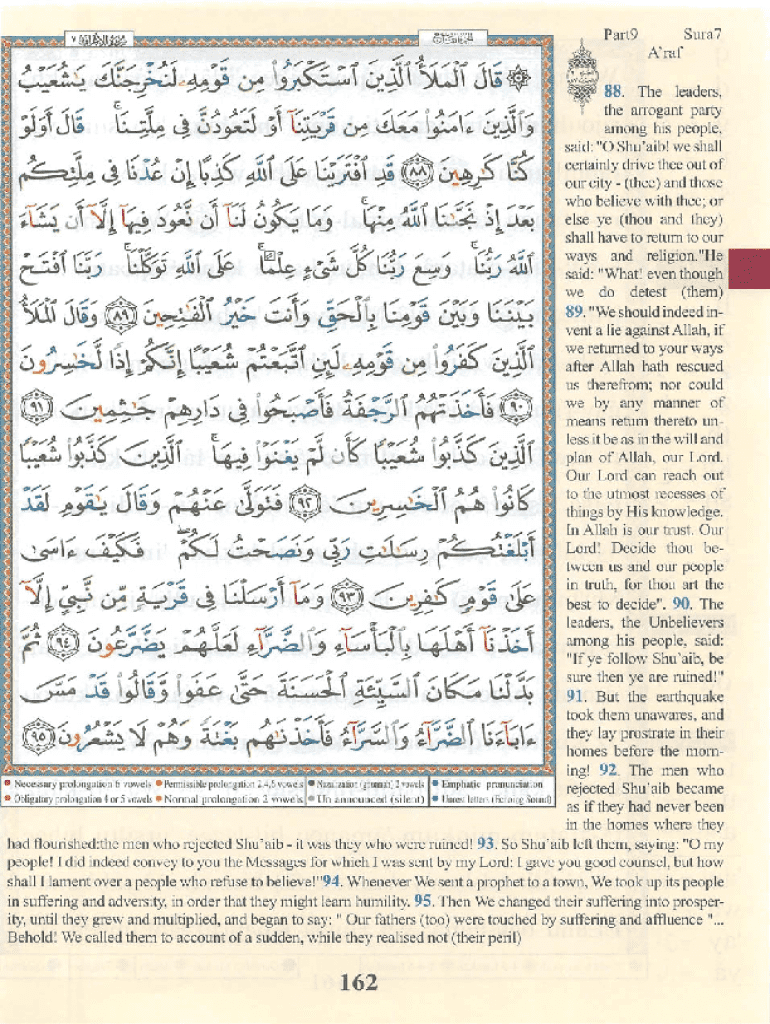 سورة الأعراف ٧
الجزء التاسع
Part9 Sura7
A'raf
۞ قَالَ ٱلْمَلَأُ ٱلَّذِينَ ٱسْتَكْبَرُوا۟ مِن قَوْمِهِۦ لَنُخْرِجَنَّكَ يَـٰشُعَيْبُ
وَٱلَّذِينَ ءَامَنُوا۟ مَعَكَ مِن قَرْيَتِنَآ أَوْ لَتَعُودُنَّ فِى مِلَّتِنَا ۚ قَالَ أَوَلَوْ
كُنَّا كَـٰرِهِينَ ٨٨ قَدِ ٱفْتَرَيْنَا عَلَى ٱللَّهِ كَذِبًا إِنْ عُدْنَا فِى مِلَّتِكُم
بَعْدَ إِذْ نَجَّىٰنَا ٱللَّهُ مِنْهَا ۚ وَمَا يَكُونُ لَنَآ أَن نَّعُودَ فِيهَآ إِلَّآ أَن يَشَآءَ
ٱللَّهُ رَبُّنَا ۚ وَسِعَ رَبُّنَا كُلَّ شَىْءٍ عِلْمًا ۚ عَلَى ٱللَّهِ تَوَكَّلْنَا ۚ رَبَّنَا ٱفْتَحْ
بَيْنَنَا وَبَيْنَ قَوْمِنَا بِٱلْحَقِّ وَأَنتَ خَيْرُ ٱلْفَـٰتِحِينَ ٨٩ وَقَالَ ٱلْمَلَأُ
ٱلَّذِينَ كَفَرُوا۟ مِن قَوْمِهِۦ لَئِنِ ٱتَّبَعْتُمْ شُعَيْبًا إِنَّكُمْ إِذًا لَّخَـٰسِرُونَ
٩٠ فَأَخَذَتْهُمُ ٱلرَّجْفَةُ فَأَصْبَحُوا۟ فِى دَارِهِمْ جَـٰثِمِينَ ٩١
ٱلَّذِينَ كَذَّبُوا۟ شُعَيْبًا كَأَن لَّمْ يَغْنَوْا۟ فِيهَا ۚ ٱلَّذِينَ كَذَّبُوا۟ شُعَيْبًا
كَانُوا۟ هُمُ ٱلْخَـٰسِرِينَ ٩٢ فَتَوَلَّىٰ عَنْهُمْ وَقَالَ يَـٰقَوْمِ لَقَدْ
أَبْلَغْتُكُمْ رِسَـٰلَـٰتِ رَبِّى وَنَصَحْتُ لَكُمْ ۖ فَكَيْفَ ءَاسَىٰ
عَلَىٰ قَوْمٍ كَـٰفِرِينَ ٩٣ وَمَآ أَرْسَلْنَا فِى قَرْيَةٍ مِّن نَّبِىٍّ إِلَّآ
أَخَذْنَآ أَهْلَهَا بِٱلْبَأْسَآءِ وَٱلضَّرَّآءِ لَعَلَّهُمْ يَضَّرَّعُونَ ٩٤ ثُمَّ
بَدَّلْنَا مَكَانَ ٱلسَّيِّئَةِ ٱلْحَسَنَةَ حَتَّىٰ عَفَوا۟ وَّقَالُوا۟ قَدْ مَسَّ
ءَابَآءَنَا ٱلضَّرَّآءُ وَٱلسَّرَّآءُ فَأَخَذْنَـٰهُم بَغْتَةً وَهُمْ لَا يَشْعُرُونَ ٩٥
Necessary prolongation 6 vowels Permissible prolongation 2,4,6 vowels Nazalization (ghunnah) 2 vowels Emphatic pronunciation
Obligatory prolongation 4 or 5 vowels Normal prolongation 2 vowels Un announced (silent) Unrest letters (Echoing Sound)
88. The leaders,
the arrogant party
among his people,
said: "O Shu'aib! we shall
certainly drive thee out of
our city - (thee) and those
who believe with thee; or
else ye (thou and they)
shall have to return to our
ways and religion."He
said: "What! even though
we do detest (them)
89. "We should indeed in-
vent a lie against Allah, if
we returned to your ways
after Allah hath rescued
us therefrom; nor could
we by any manner of
means return thereto un-
less it be as in the will and
plan of Allah, our Lord.
Our Lord can reach out
to the utmost recesses of
things by His knowledge.
In Allah is our trust. Our
Lord! Decide thou be-
tween us and our people
in truth, for thou art the
best to decide". 90. The
leaders, the Unbelievers
among his people, said:
"If ye follow Shu'aib, be
sure then ye are ruined!"
91. But the earthquake
took them unawares, and
they lay prostrate in their
homes before the morn-
ing! 92. The men who
rejected Shu'aib became
as if they had never been
in the homes where they
had flourished:the men who rejected Shu'aib - it was they who were ruined! 93. So Shu'aib left them, saying: "O my
people! I did indeed convey to you the Messages for which I was sent by my Lord: I gave you good counsel, but how
shall I lament over a people who refuse to believe!"94. Whenever We sent a prophet to a town, We took up its people
in suffering and adversity, in order that they might learn humility. 95. Then We changed their suffering into prosper-
ity, until they grew and multiplied, and began to say: " Our fathers (too) were touched by suffering and affluence "...
Behold! We called them to account of a sudden, while they realised not (their peril)
162